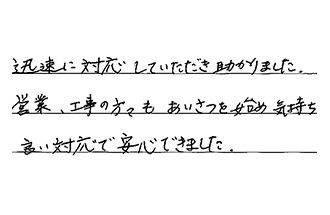 迅速に対応していただき助かりました。
営業、工事の方々も あいさつを始め気持ち
良い対応で安心できました。